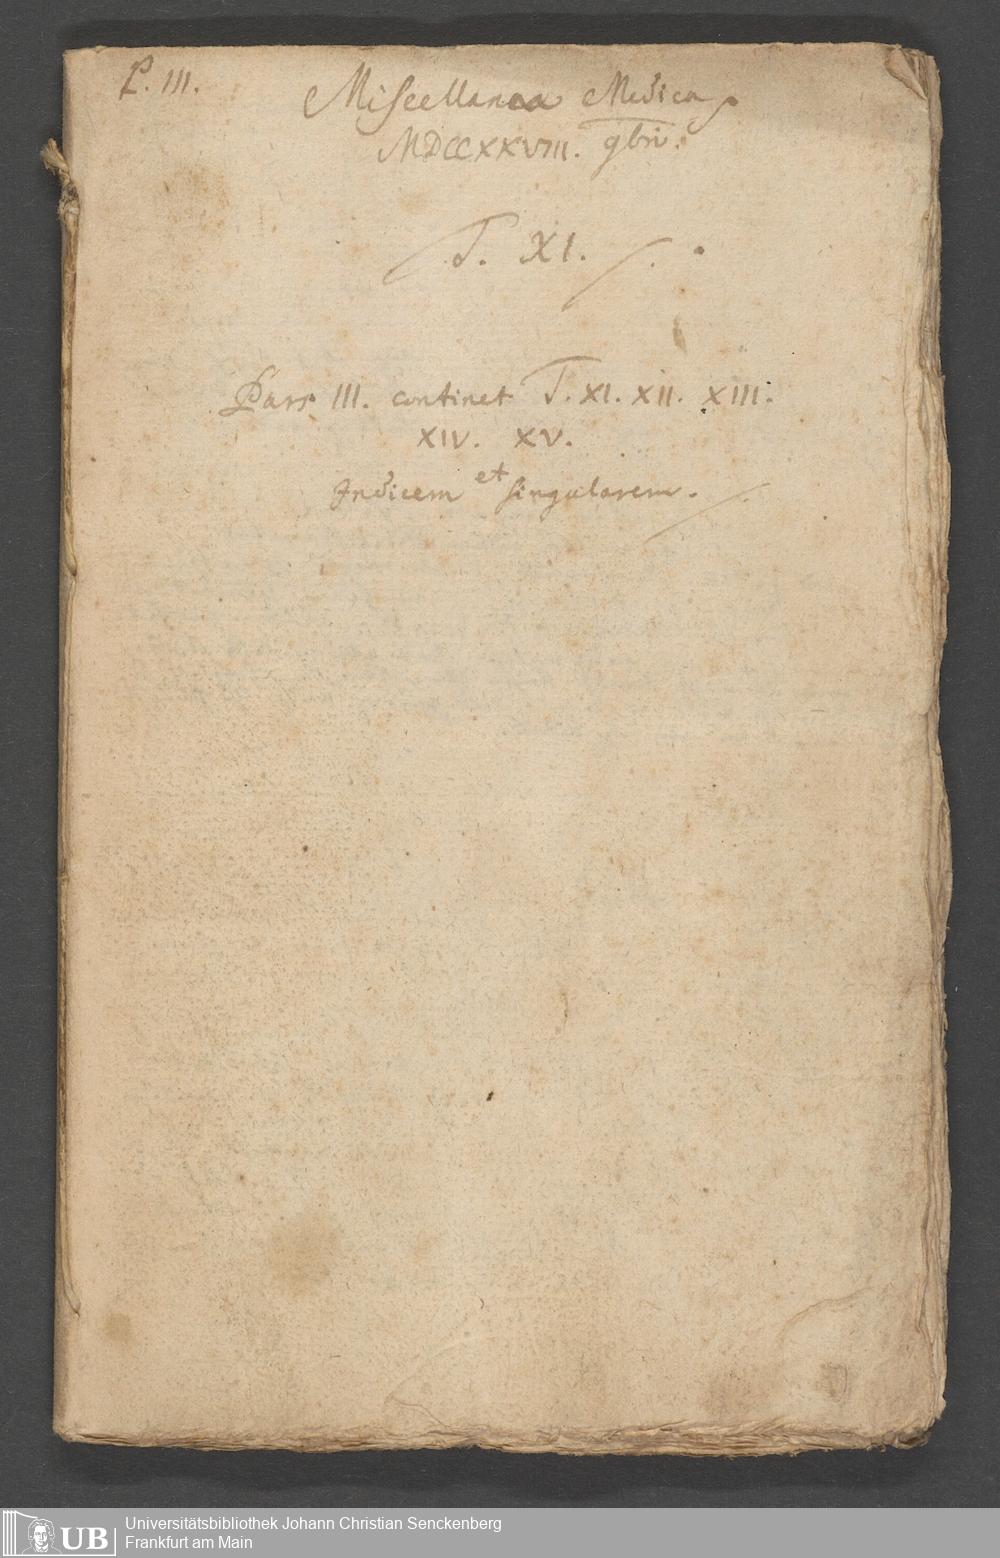 P. III.
Miscellanea Medica
MDCCXXVIII. 9bri.
T. XI.
Pars III. continet T. XI. XII. XIII.
XIV. XV.
Indicem et singularem.
UB Universitätsbibliothek Johann Christian Senckenberg
Frankfurt am Main